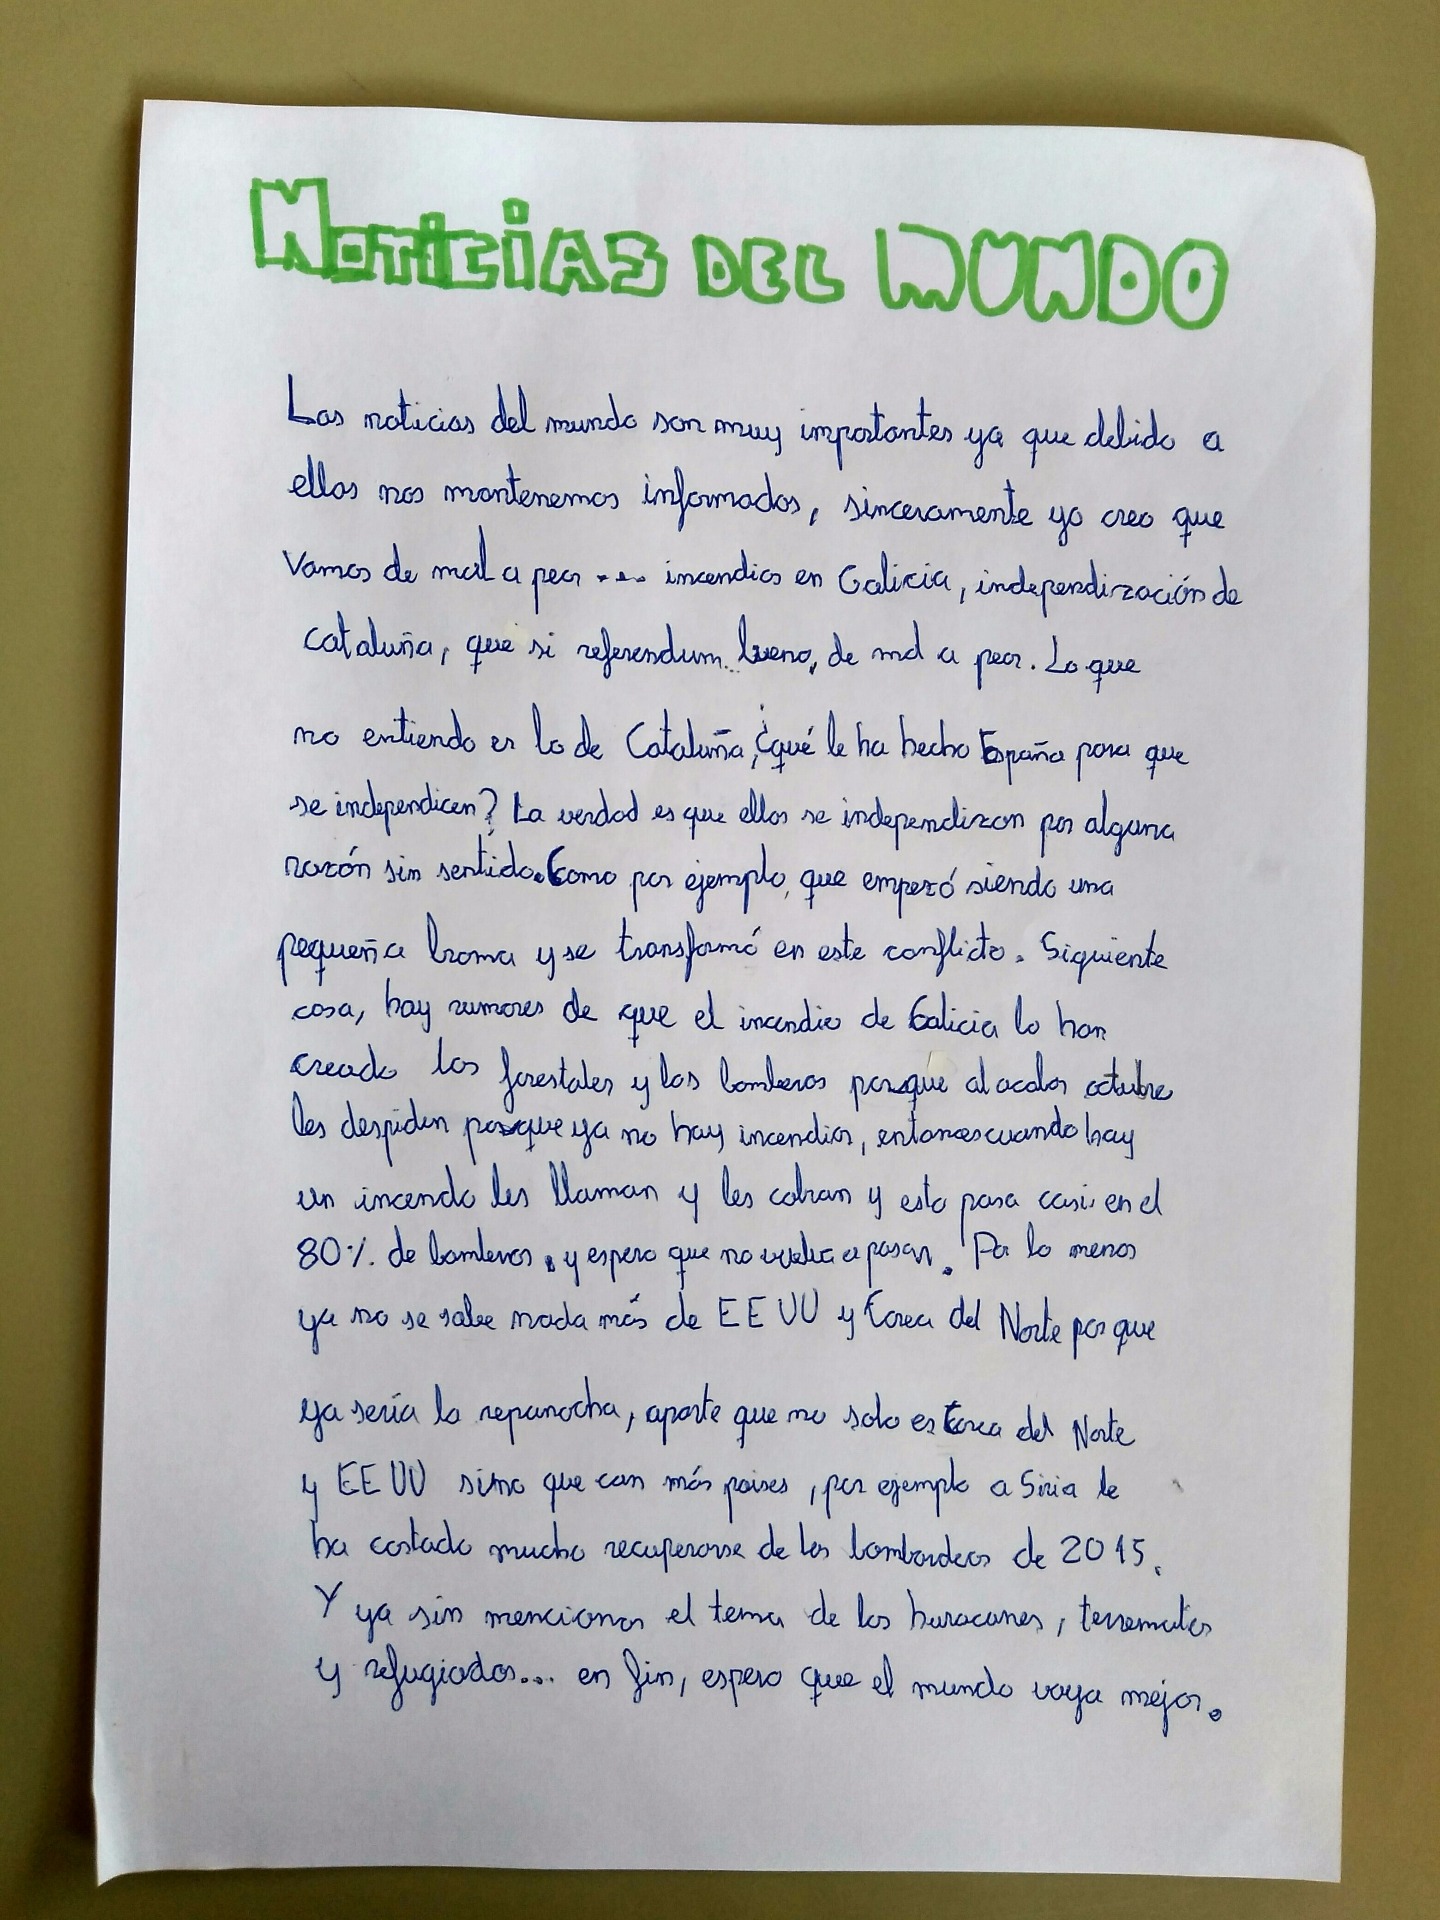 NOTICIAS DEL MUNDO
Las noticias del mundo son muy importantes ya que debido a
ellas nos mantenemos informados, sinceramente yo creo que
Vamos de mal a peor ... incendios en Galicia, independización de
cataluña, que si referendum... bueno, de mal a peor. Lo que
no entiendo es lo de Cataluña, ¿qué le ha hecho España para que
se independicen? La verdad es que ellos se independizan por alguna
razón sin sentido. Como por ejemplo, que empezó siendo una
pequeña broma y se transformó en este conflicto. Siguiente
cosa, hay rumores de que el incendio de Galicia lo han
creado los forestales y los bomberos porque al acabar octubre
les despiden porque ya no hay incendios, entonces cuando hay
un incendo les llaman y les cobran y esto pasa casi en el
80% de bomberos, y espero que no vuelva a pasar. Por lo menos
ya no se sabe nada más de EEUU y Corea del Norte por que
ya sería la repanocha, aparte que no solo es Corea del Norte
y EEUU sino que con más paises, por ejemplo a Siria le
ha costado mucho recuperarse de los bombardeos de 2015.
Y ya sin mencionar el tema de los huracanes, terremotos
y refugiados... en fin, espero que el mundo vaya mejor.